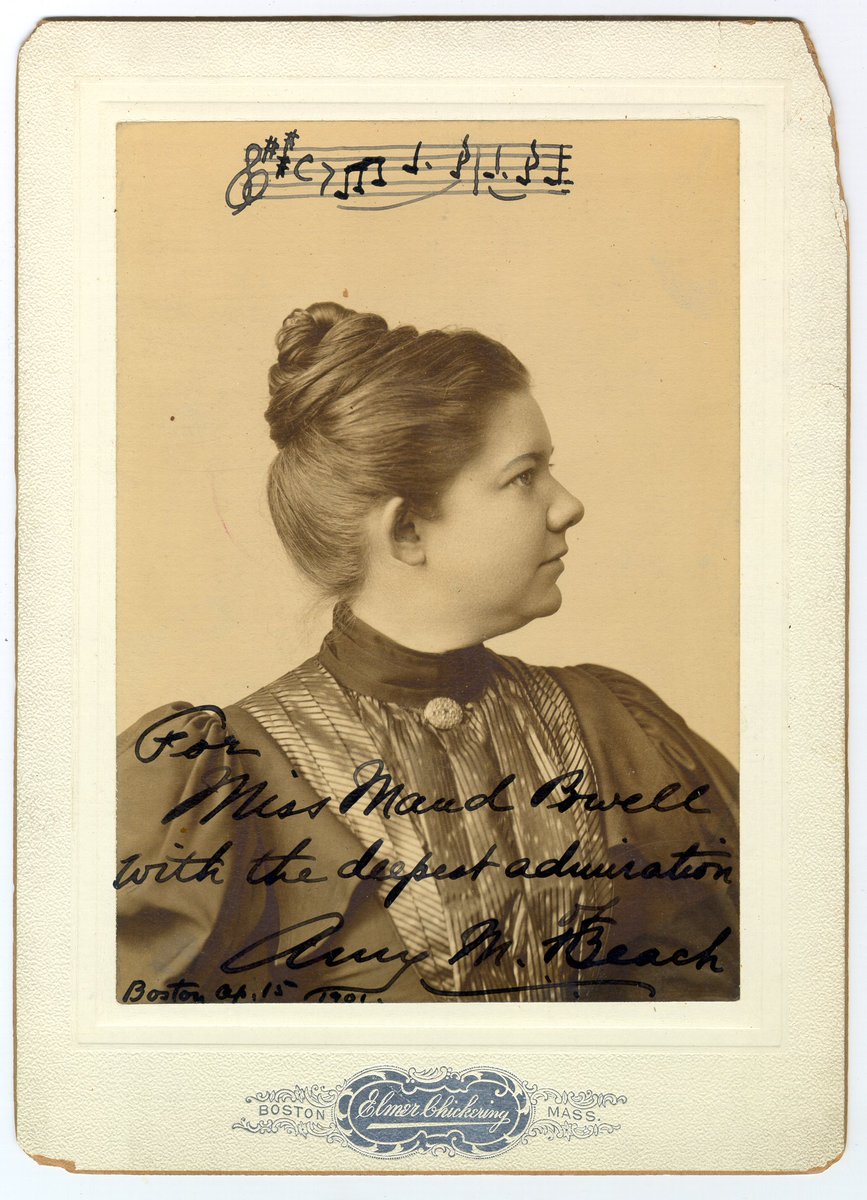 For
Miss Maud Powell
with the deepest admiration
of
Amy M. Beach
Boston Ap. 15 1901.
BOSTON Elmer Chickering MASS.